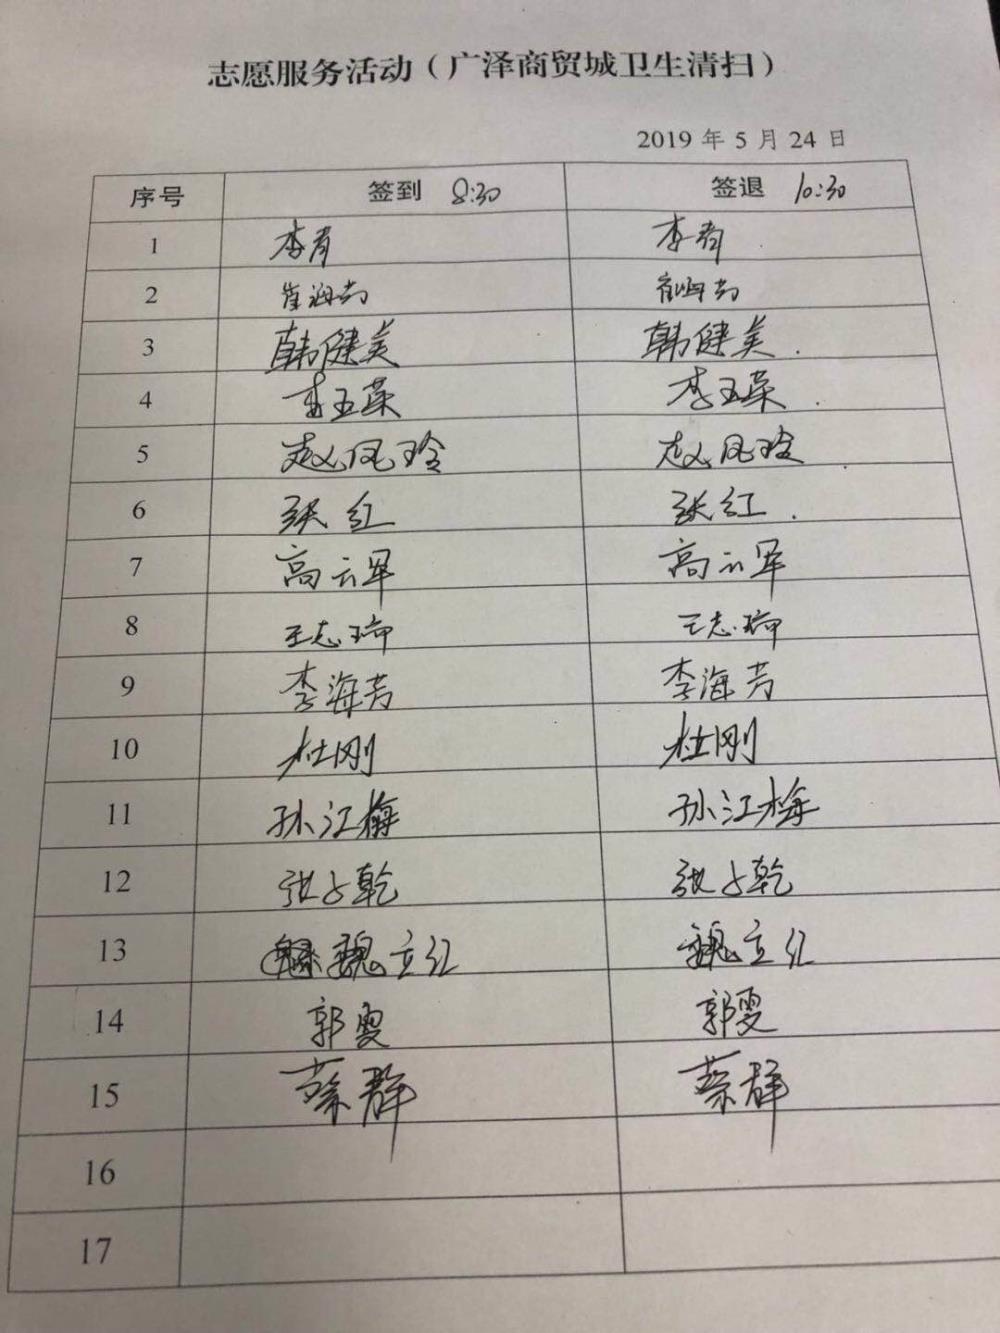 志愿服务活动（广泽商贸城卫生清扫）
2019 年 5 月 24 日
序号 签到 8:30 签退 10:30
1 李青 李青
2 崔海芳 崔海芳
3 韩健美 韩健美
4 李玉荣 李玉荣
5 赵凤玲 赵凤玲
6 张红 张红
7 高云军 高云军
8 王志瑞 王志瑞
9 李海芳 李海芳
10 杜刚 杜刚
11 孙江梅 孙江梅
12 张占乾 张占乾
13 魏立红 魏立红
14 郭雯 郭雯
15 蔡群 蔡群
16
17